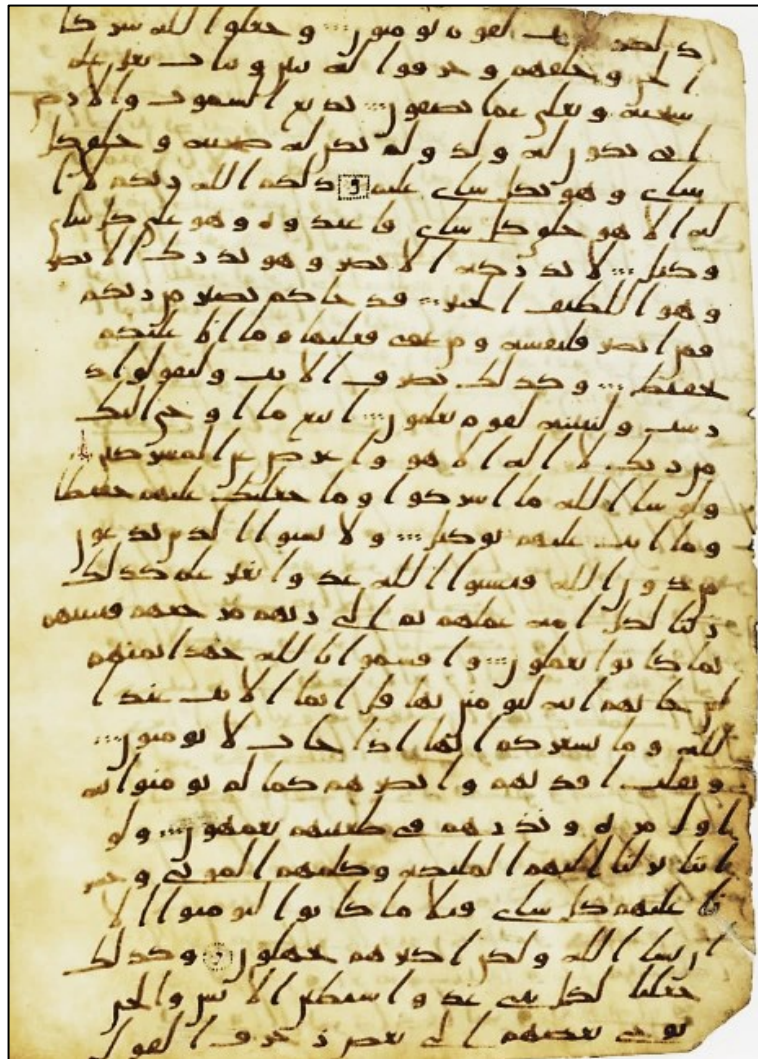 ذلكم لايت لقوم يومنون وجعلوا لله شركا
الجن وخلقهم وخرقوا له بنين وبنت بغير علم
سبحنه وتعلى عما يصفون بديع السموت والارض
انى يكون له ولد ولم تكن له صحبة وخلق كل
شاى وهو بكل شاى عليم ذلكم الله ربكم لا ا
له الا هو خلق كل شاى فاعبدوه وهو على كل شاى
وكيل لا تدركه الابصر وهو يدرك الابصر
وهو اللطيف الخبير قد جاكم بصير من ربكم
فمن ابصر فلنفسه ومن عمى فعليها وما انا عليكم
بحفيظ وكذلك نصرف الايت وليقولوا د
رست ولنبينه لقوم يعلمون اتبع ما اوحى اليك
من ربك لا اله الا هو واعرض عن المشركين
ولو شا الله ما اشركوا وما جعلنك عليهم حفيظا
وما انت عليهم بوكيل ولا تسبوا الذين يدعون
من دون الله فيسبوا الله عدوا بغير علم كذلك
زينا لكل امة عملهم ثم الى ربهم مرجعهم فينبئهم
بما كانوا يعملون واقسموا بالله جهد ايمنهم
لئن جاتهم اية ليومنن بها قل انما الايت عند ا
لله وما يشعركم انها اذا جات لا يومنون
ونقلب افدتهم وابصرهم كما لم يومنوا به
اول مرة ونذرهم فى طغينهم يعمهون ولو
اننا نزلنا اليهم الملئكة وكلمهم الموتى وحشر
نا عليهم كل شاى قبلا ما كانوا ليومنوا الا
ان يشا الله ولكن اكثرهم يجهلون وكذلك
جعلنا لكل نبى عدوا شيطين الانس والجن
يوحى بعضهم الى بعض زخرف القول